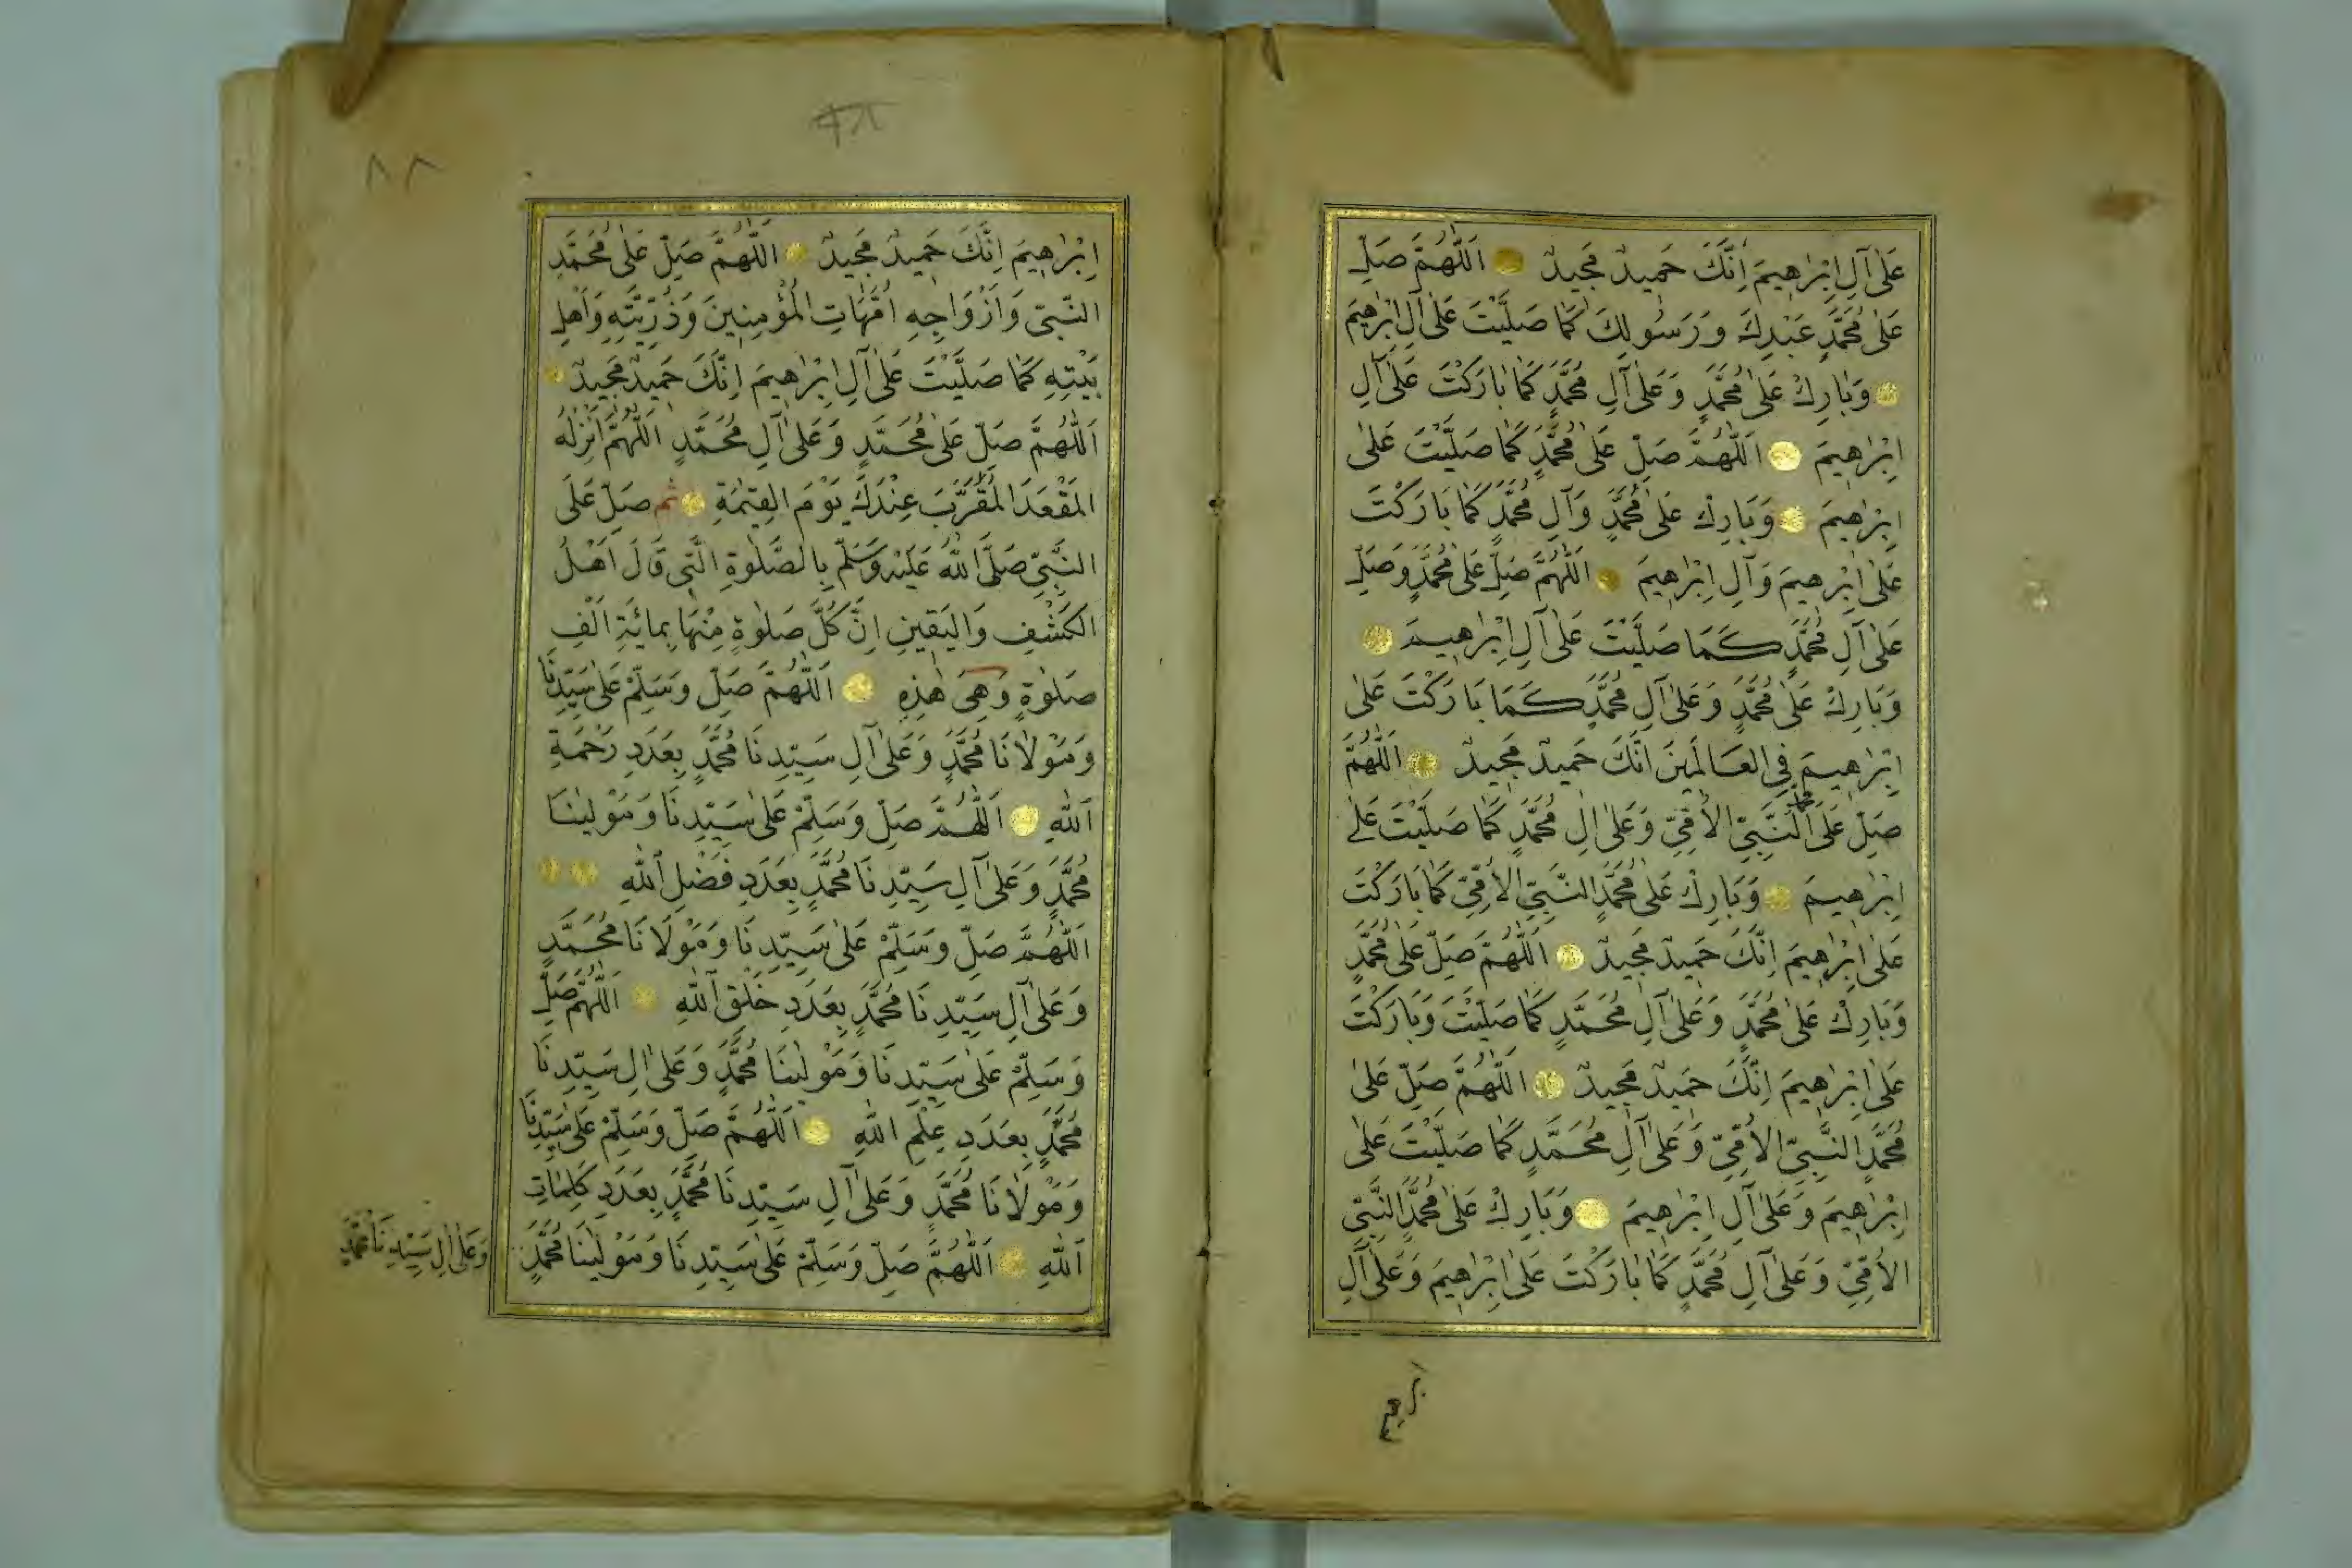 عَلٰى آلِ اِبْرٰهِيمَ اِنَّكَ حَمِيدٌ مَجِيدٌ اَللّٰهُمَّ صَلِّ
عَلٰى مُحَمَّدٍ عَبْدِكَ وَرَسُولِكَ كَمَا صَلَّيْتَ عَلٰى آلِ اِبْرٰهِيمَ
وَبَارِكْ عَلٰى مُحَمَّدٍ وَعَلٰى آلِ مُحَمَّدٍ كَمَا بَارَكْتَ عَلٰى آلِ
اِبْرٰهِيمَ اَللّٰهُمَّ صَلِّ عَلٰى مُحَمَّدٍ كَمَا صَلَّيْتَ عَلٰى
اِبْرٰهِيمَ وَبَارِكْ عَلٰى مُحَمَّدٍ وَآلِ مُحَمَّدٍ كَمَا بَارَكْتَ
عَلٰى اِبْرٰهِيمَ وَآلِ اِبْرٰهِيمَ اَللّٰهُمَّ صَلِّ عَلٰى مُحَمَّدٍ وَصَلِّ
عَلٰى آلِ مُحَمَّدٍ كَمَا صَلَّيْتَ عَلٰى آلِ اِبْرٰهِيمَ
وَبَارِكْ عَلٰى مُحَمَّدٍ وَعَلٰى آلِ مُحَمَّدٍ كَمَا بَارَكْتَ عَلٰى
اِبْرٰهِيمَ فِي الْعَالَمِينَ اِنَّكَ حَمِيدٌ مَجِيدٌ اَللّٰهُمَّ
صَلِّ عَلٰى مُحَمَّدٍ النَّبِيِّ الْاُمِّيِّ وَعَلٰى اٰلِ مُحَمَّدٍ كَمَا صَلَّيْتَ عَلٰى
اِبْرٰهِيمَ وَبَارِكْ عَلٰى مُحَمَّدٍ النَّبِيِّ الْاُمِّيِّ كَمَا بَارَكْتَ
عَلٰى اِبْرٰهِيمَ اِنَّكَ حَمِيدٌ مَجِيدٌ اَللّٰهُمَّ صَلِّ عَلٰى مُحَمَّدٍ
وَبَارِكْ عَلٰى مُحَمَّدٍ وَعَلٰى آلِ مُحَمَّدٍ كَمَا صَلَّيْتَ وَبَارَكْتَ
عَلٰى اِبْرٰهِيمَ اِنَّكَ حَمِيدٌ مَجِيدٌ اَللّٰهُمَّ صَلِّ عَلٰى
مُحَمَّدٍ النَّبِيِّ الْاُمِّيِّ وَعَلٰى آلِ مُحَمَّدٍ كَمَا صَلَّيْتَ عَلٰى
اِبْرٰهِيمَ وَعَلٰى آلِ اِبْرٰهِيمَ وَبَارِكْ عَلٰى مُحَمَّدٍ النَّبِيِّ
الْاُمِّيِّ وَعَلٰى آلِ مُحَمَّدٍ كَمَا بَارَكْتَ عَلٰى اِبْرٰهِيمَ وَعَلٰى آلِ
ابرهيم
٨٨
اِبْرٰهِيمَ اِنَّكَ حَمِيدٌ مَجِيدٌ اَللّٰهُمَّ صَلِّ عَلٰى مُحَمَّدٍ
النَّبِيِّ وَاَزْوَاجِهِ اُمَّهَاتِ الْمُؤْمِنِينَ وَذُرِّيَّتِهِ وَاَهْلِ
بَيْتِهِ كَمَا صَلَّيْتَ عَلٰى آلِ اِبْرٰهِيمَ اِنَّكَ حَمِيدٌ مَجِيدٌ
اَللّٰهُمَّ صَلِّ عَلٰى مُحَمَّدٍ وَعَلٰى آلِ مُحَمَّدٍ اَللّٰهُمَّ اَنْزِلْهُ
الْمَقْعَدَ الْمُقَرَّبَ عِنْدَكَ يَوْمَ الْقِيٰمَةِ ثم صَلِّ عَلَى
النَّبِيِّ صَلَّى اللّٰهُ عَلَيْهِ وَسَلَّمَ بِالصَّلٰوةِ الَّتِي قَالَ اَهْلُ
الْكَشْفِ وَالْيَقِينِ اِنَّ كُلَّ صَلٰوةٍ مِنْهَا بِمِائَةِ اَلْفِ
صَلٰوةٍ وَهِيَ هٰذِهِ اَللّٰهُمَّ صَلِّ وَسَلِّمْ عَلٰى سَيِّدِنَا
وَمَوْلَانَا مُحَمَّدٍ وَعَلٰى آلِ سَيِّدِنَا مُحَمَّدٍ بِعَدَدِ رَحْمَةِ
اللّٰهِ اَللّٰهُمَّ صَلِّ وَسَلِّمْ عَلٰى سَيِّدِنَا وَمَوْلٰينَا
مُحَمَّدٍ وَعَلٰى آلِ سَيِّدِنَا مُحَمَّدٍ بِعَدَدِ فَضْلِ اللّٰهِ
اَللّٰهُمَّ صَلِّ وَسَلِّمْ عَلٰى سَيِّدِنَا وَمَوْلَانَا مُحَمَّدٍ
وَعَلٰى آلِ سَيِّدِنَا مُحَمَّدٍ بِعَدَدِ خَلْقِ اللّٰهِ اَللّٰهُمَّ صَلِّ
وَسَلِّمْ عَلٰى سَيِّدِنَا وَمَوْلٰينَا مُحَمَّدٍ وَعَلٰى اٰلِ سَيِّدِنَا
مُحَمَّدٍ بِعَدَدِ عِلْمِ اللّٰهِ اَللّٰهُمَّ صَلِّ وَسَلِّمْ عَلٰى سَيِّدِنَا
وَمَوْلَانَا مُحَمَّدٍ وَعَلٰى آلِ سَيِّدِنَا مُحَمَّدٍ بِعَدَدِ كَلِمَاتِ
اللّٰهِ اَللّٰهُمَّ صَلِّ وَسَلِّمْ عَلٰى سَيِّدِنَا وَمَوْلٰينَا مُحَمَّدٍ
وَعَلٰى اٰلِ سَيِّدِنَا مُحَمَّدٍ